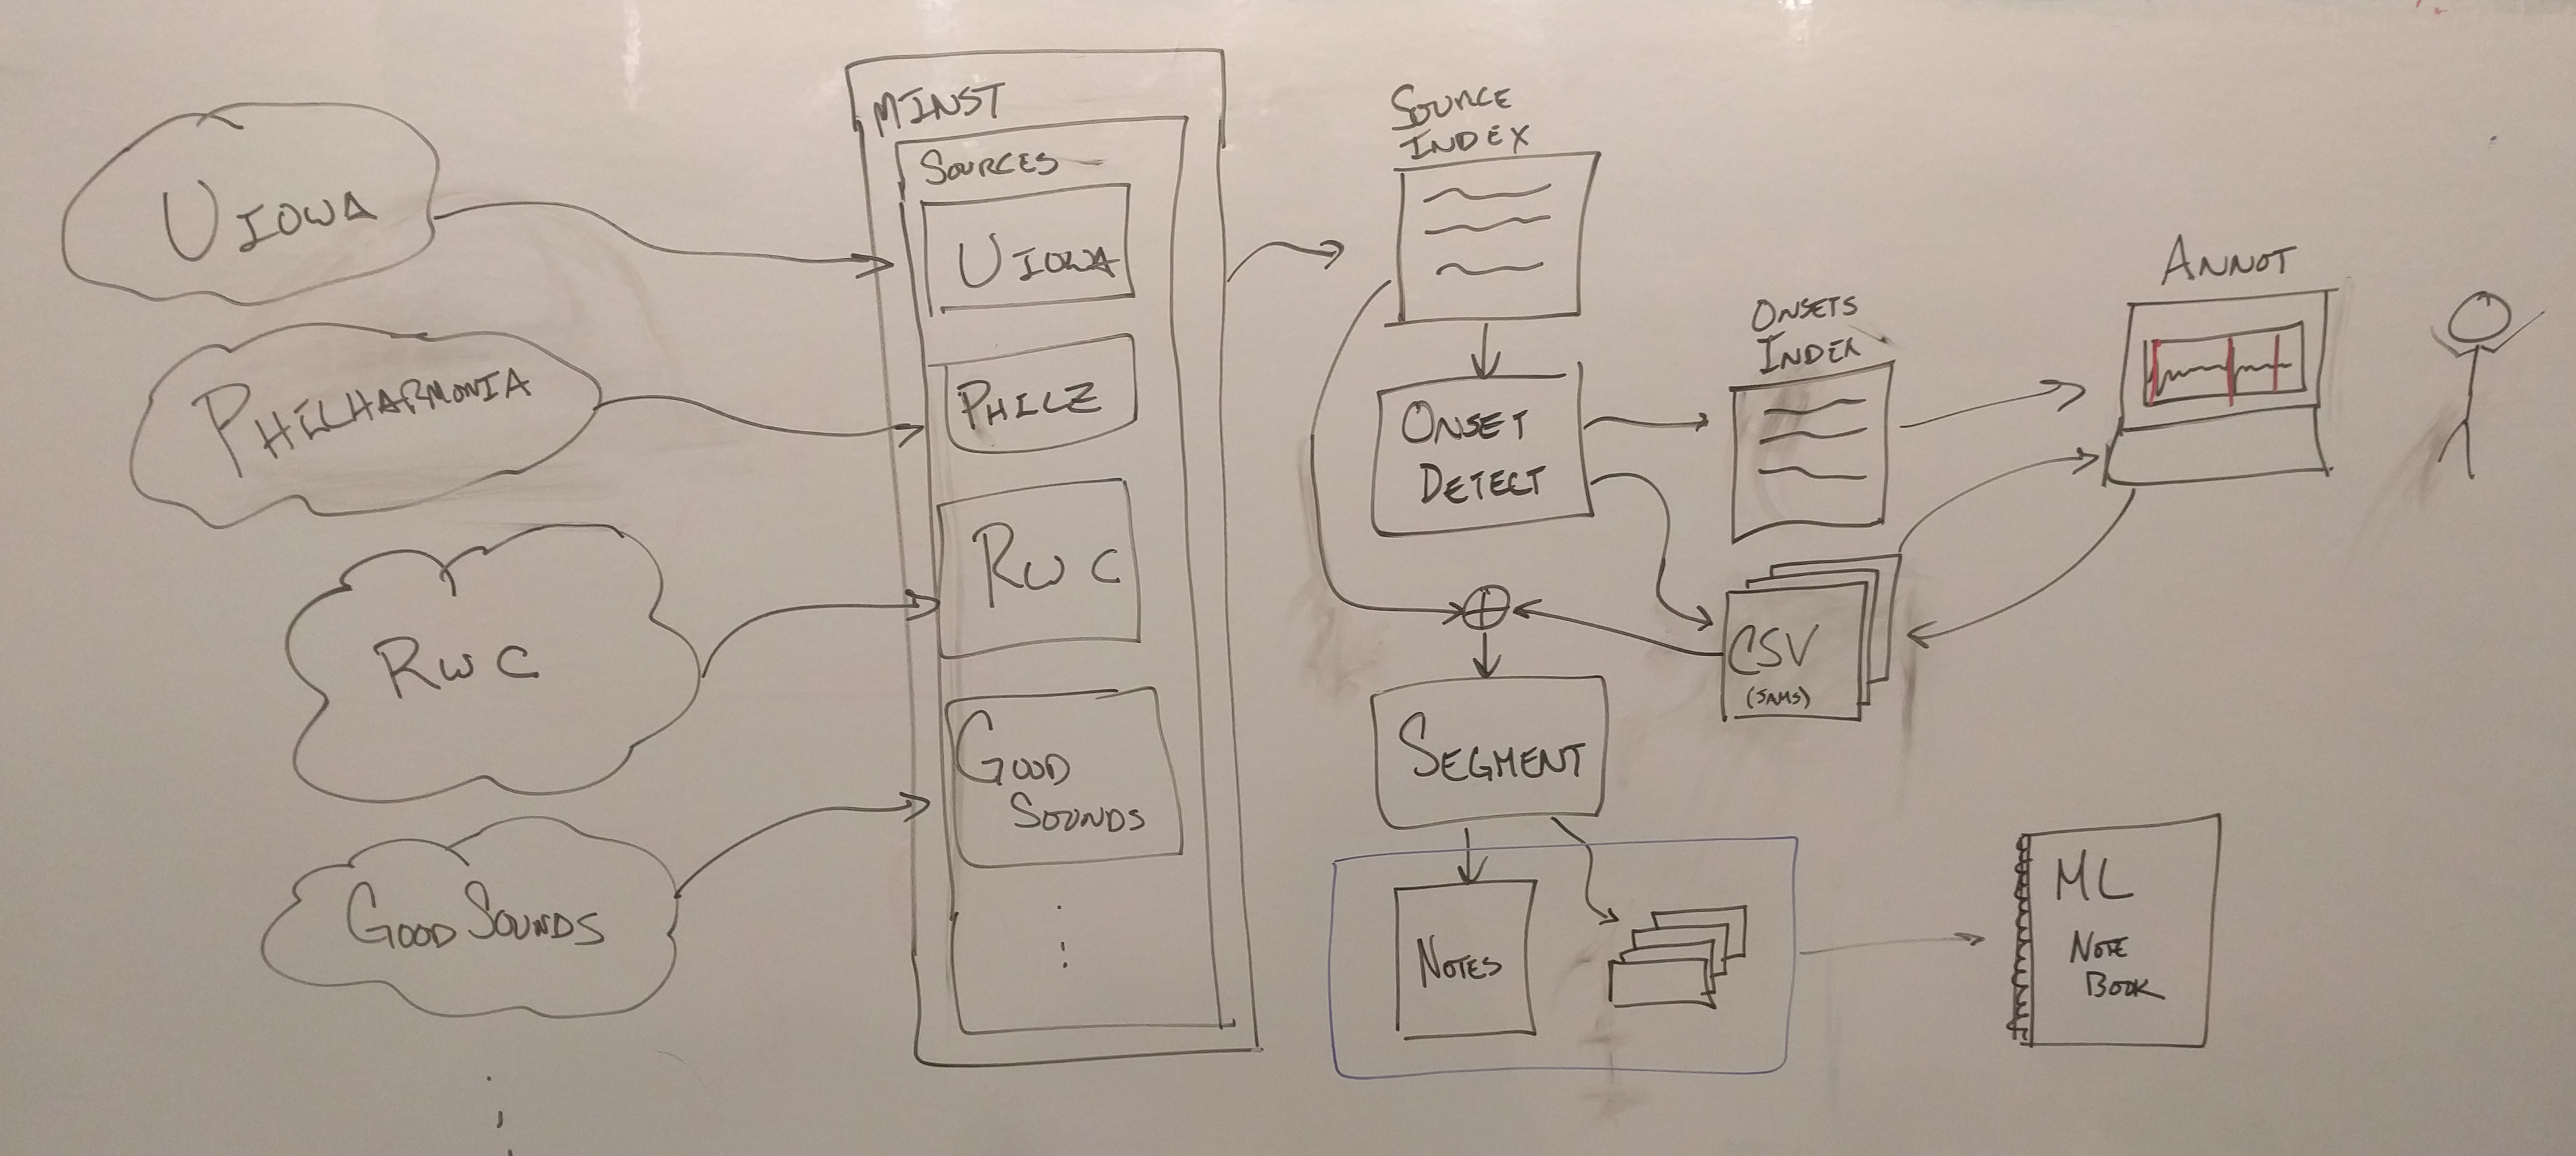 U IOWA
PHILHARMONIA
RWC
GOOD SOUNDS
MINST
SOURCES
U IOWA
PHILZ
RWC
GOOD
SOUNDS
SOURCE
INDEX
ONSET
DETECT
ONSETS
INDEX
ANNOT
CSV
(JAMS)
SEGMENT
NOTES
ML
NOTE
BOOK